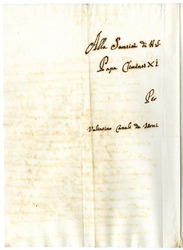 Alla Santità di N.S.
Papa Clemente XI
Per
Valentino Canali da Terni